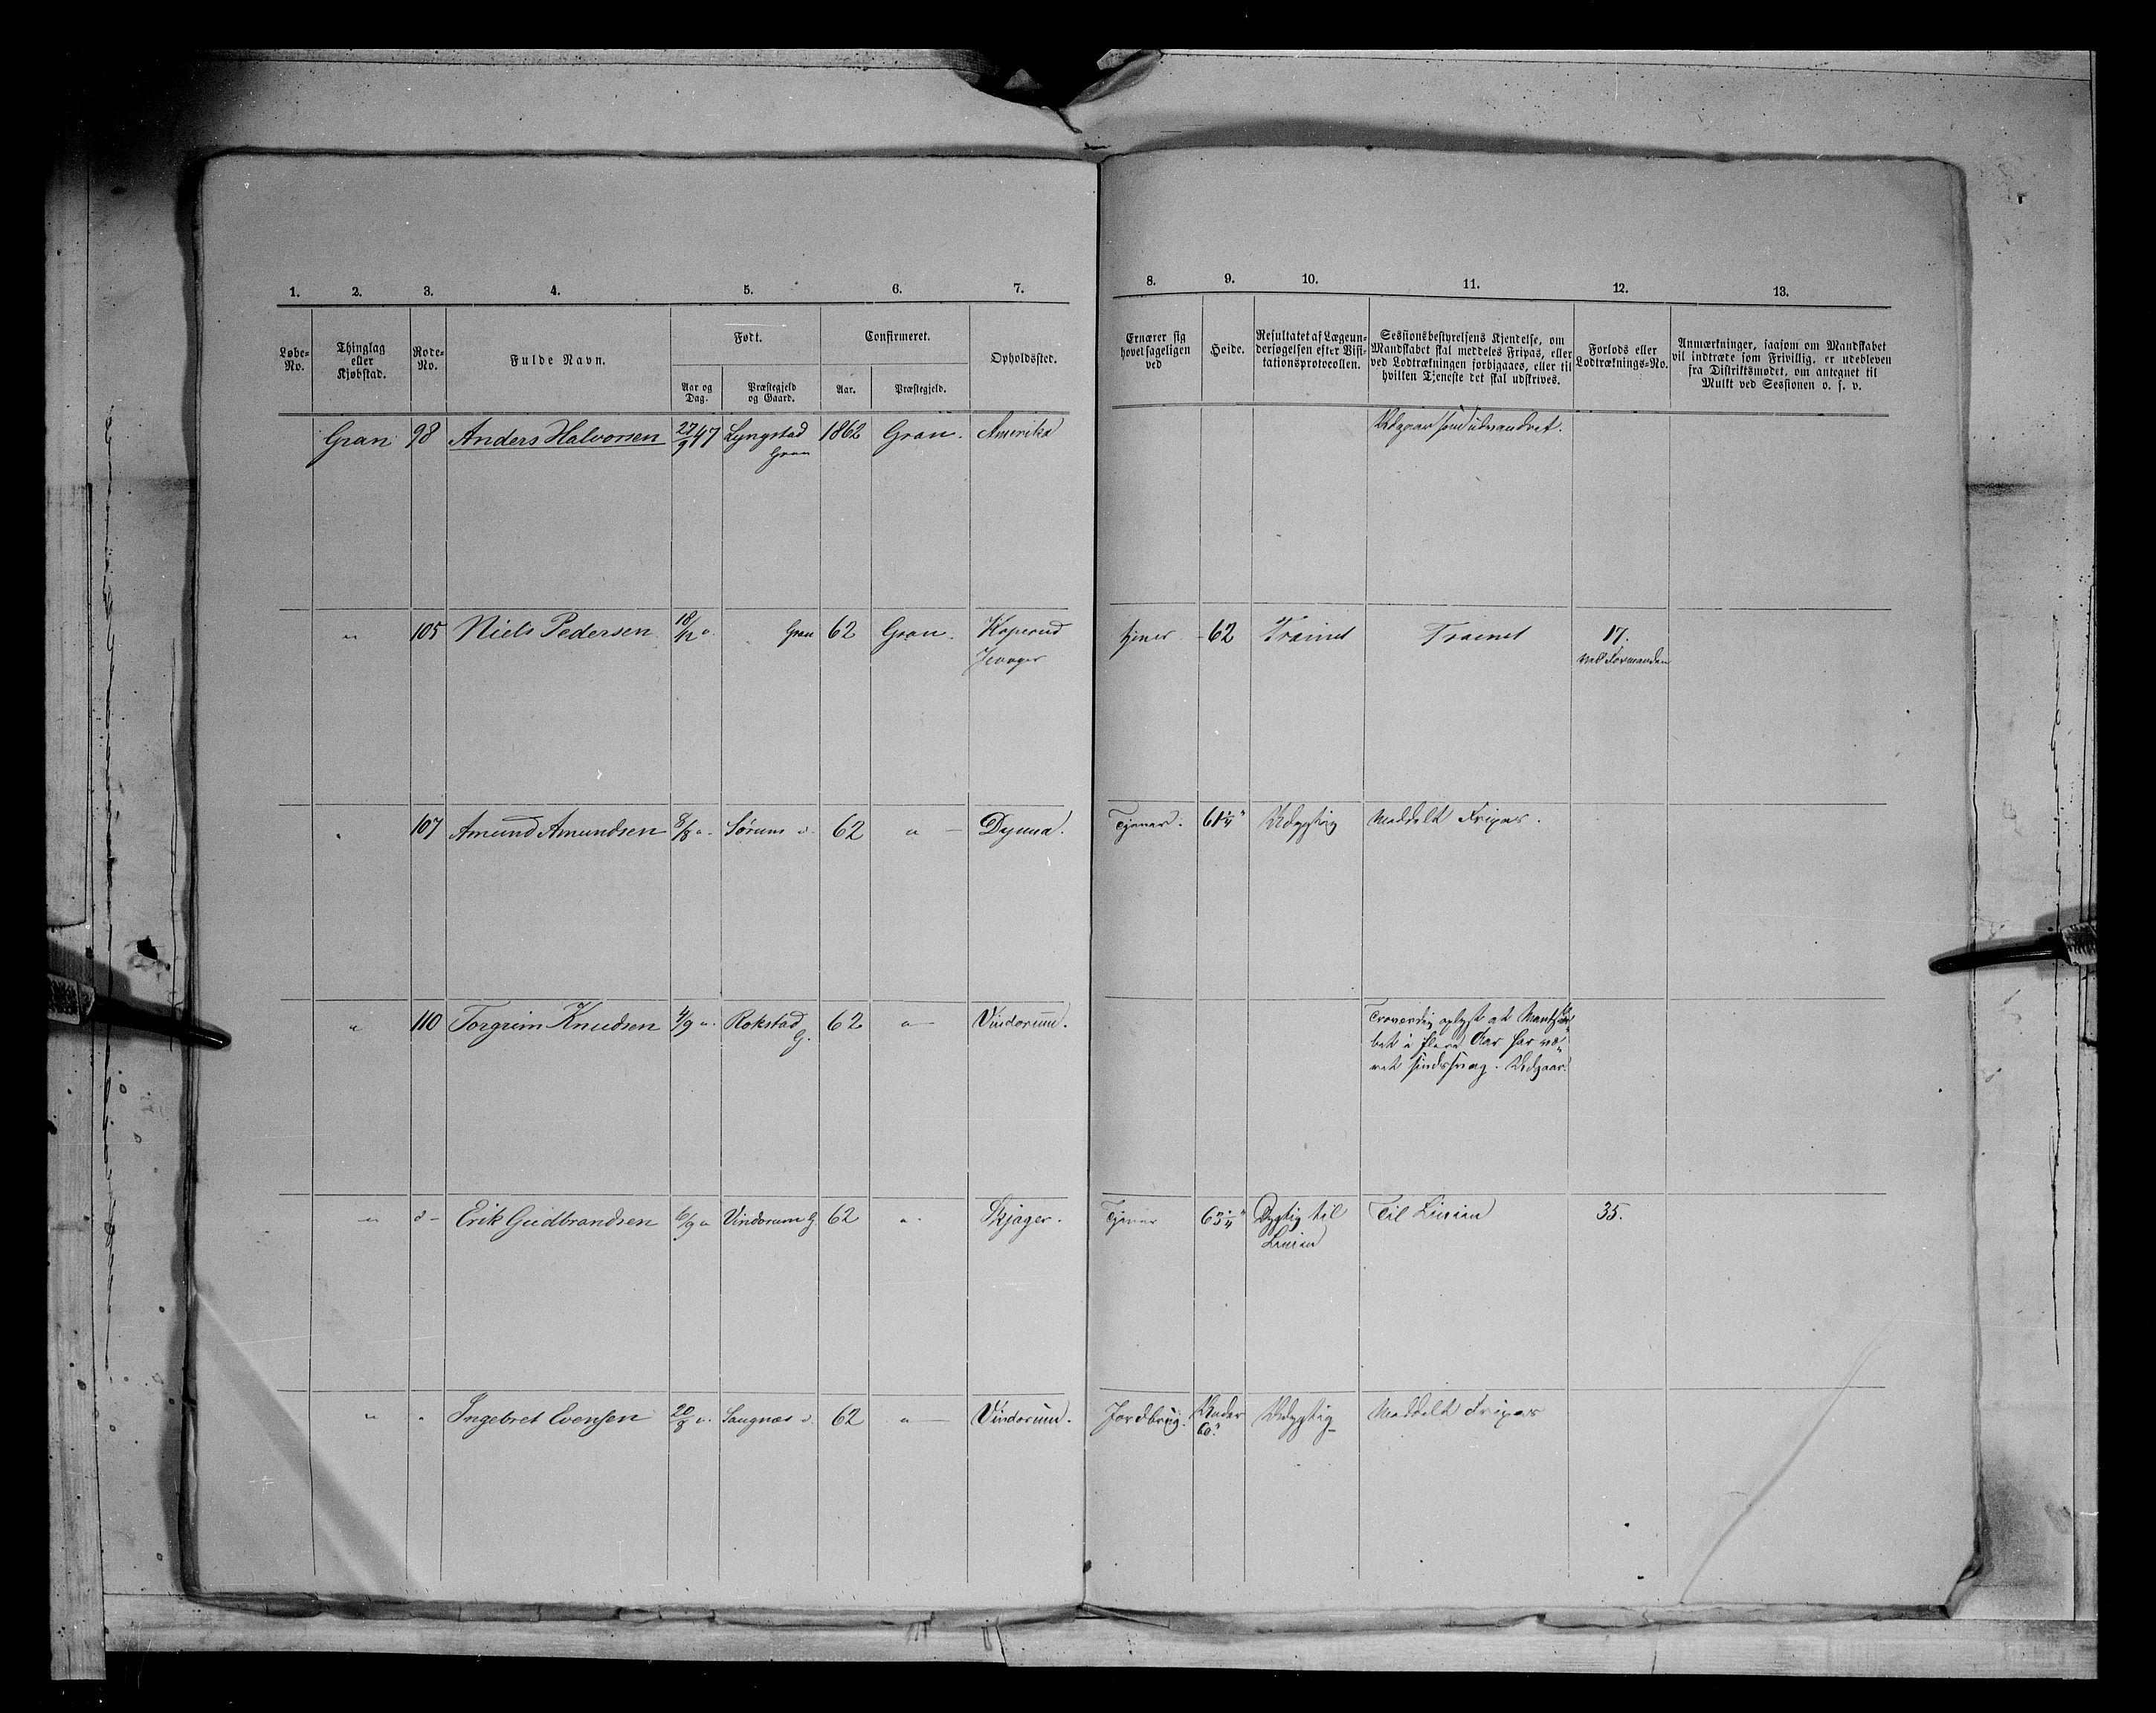 1. 2. 3. 4. 5. 6. 7. 8. 9. 10. 11. 12. 13.
Løbe-No. Thinglag eller Kjøbstad. Rode-No. Fulde Navn. Født. Confirmeret. Opholdssted.
Aar og Dag. Præstegjeld og Gaard. Aar. Præstegjeld.
Ernærer sig hovedsageligen ved
Høide.
Resultatet af Lægeundersøgelsen efter Visitationsprotocollen.
Sessionsbestyrelsens Kjendelse, om Mandskabet skal meddeles Fripas, eller ved Lodtrækningen forbigaaes, eller til hvilken Tjeneste det skal udskrives.
Forlods eller Lodtræknings-No.
Anmærkninger, saasom om Mandskabet vil indtræde som Frivillig, er udebleven fra Distriktsmødet, om antegnet til Mulkt ved Sessionen o. s. v.
Gran 98 Anders Halvorsen 27/9 47 Lyngstad Gran 1862 Gran. Amerika Udgaar som udvandret.
" 105 Niels Pedersen 18/12 " Gran 62 Gran. Koperud tjener 62 Trainet Trainet 17.
ved Formanden
" 107 Amund Amundsen 8/8 " Sørum d. 62 " Dynna. Tjener. 61 1/4" Udygtig Meddelt Fripas.
" 110 Torgrim Knudsen 4/9 " Rokstad G. 62 " Vindorum. Troverdig oplyst at Mandska-
bet i flere Aar har væ-
ret sindssvag. Udgaar.
" d- Erik Gudbrandsen 6/9 " Vindorum G. 62 " Skjager. Tjener 63 1/4" Dygtig til Linien Til Linien 35.
" " Ingebret Evensen 20/8 " Sangnæs d. 62 " Vindorum. Jordbrug. Under 60" Udygtig Meddelt Fripas